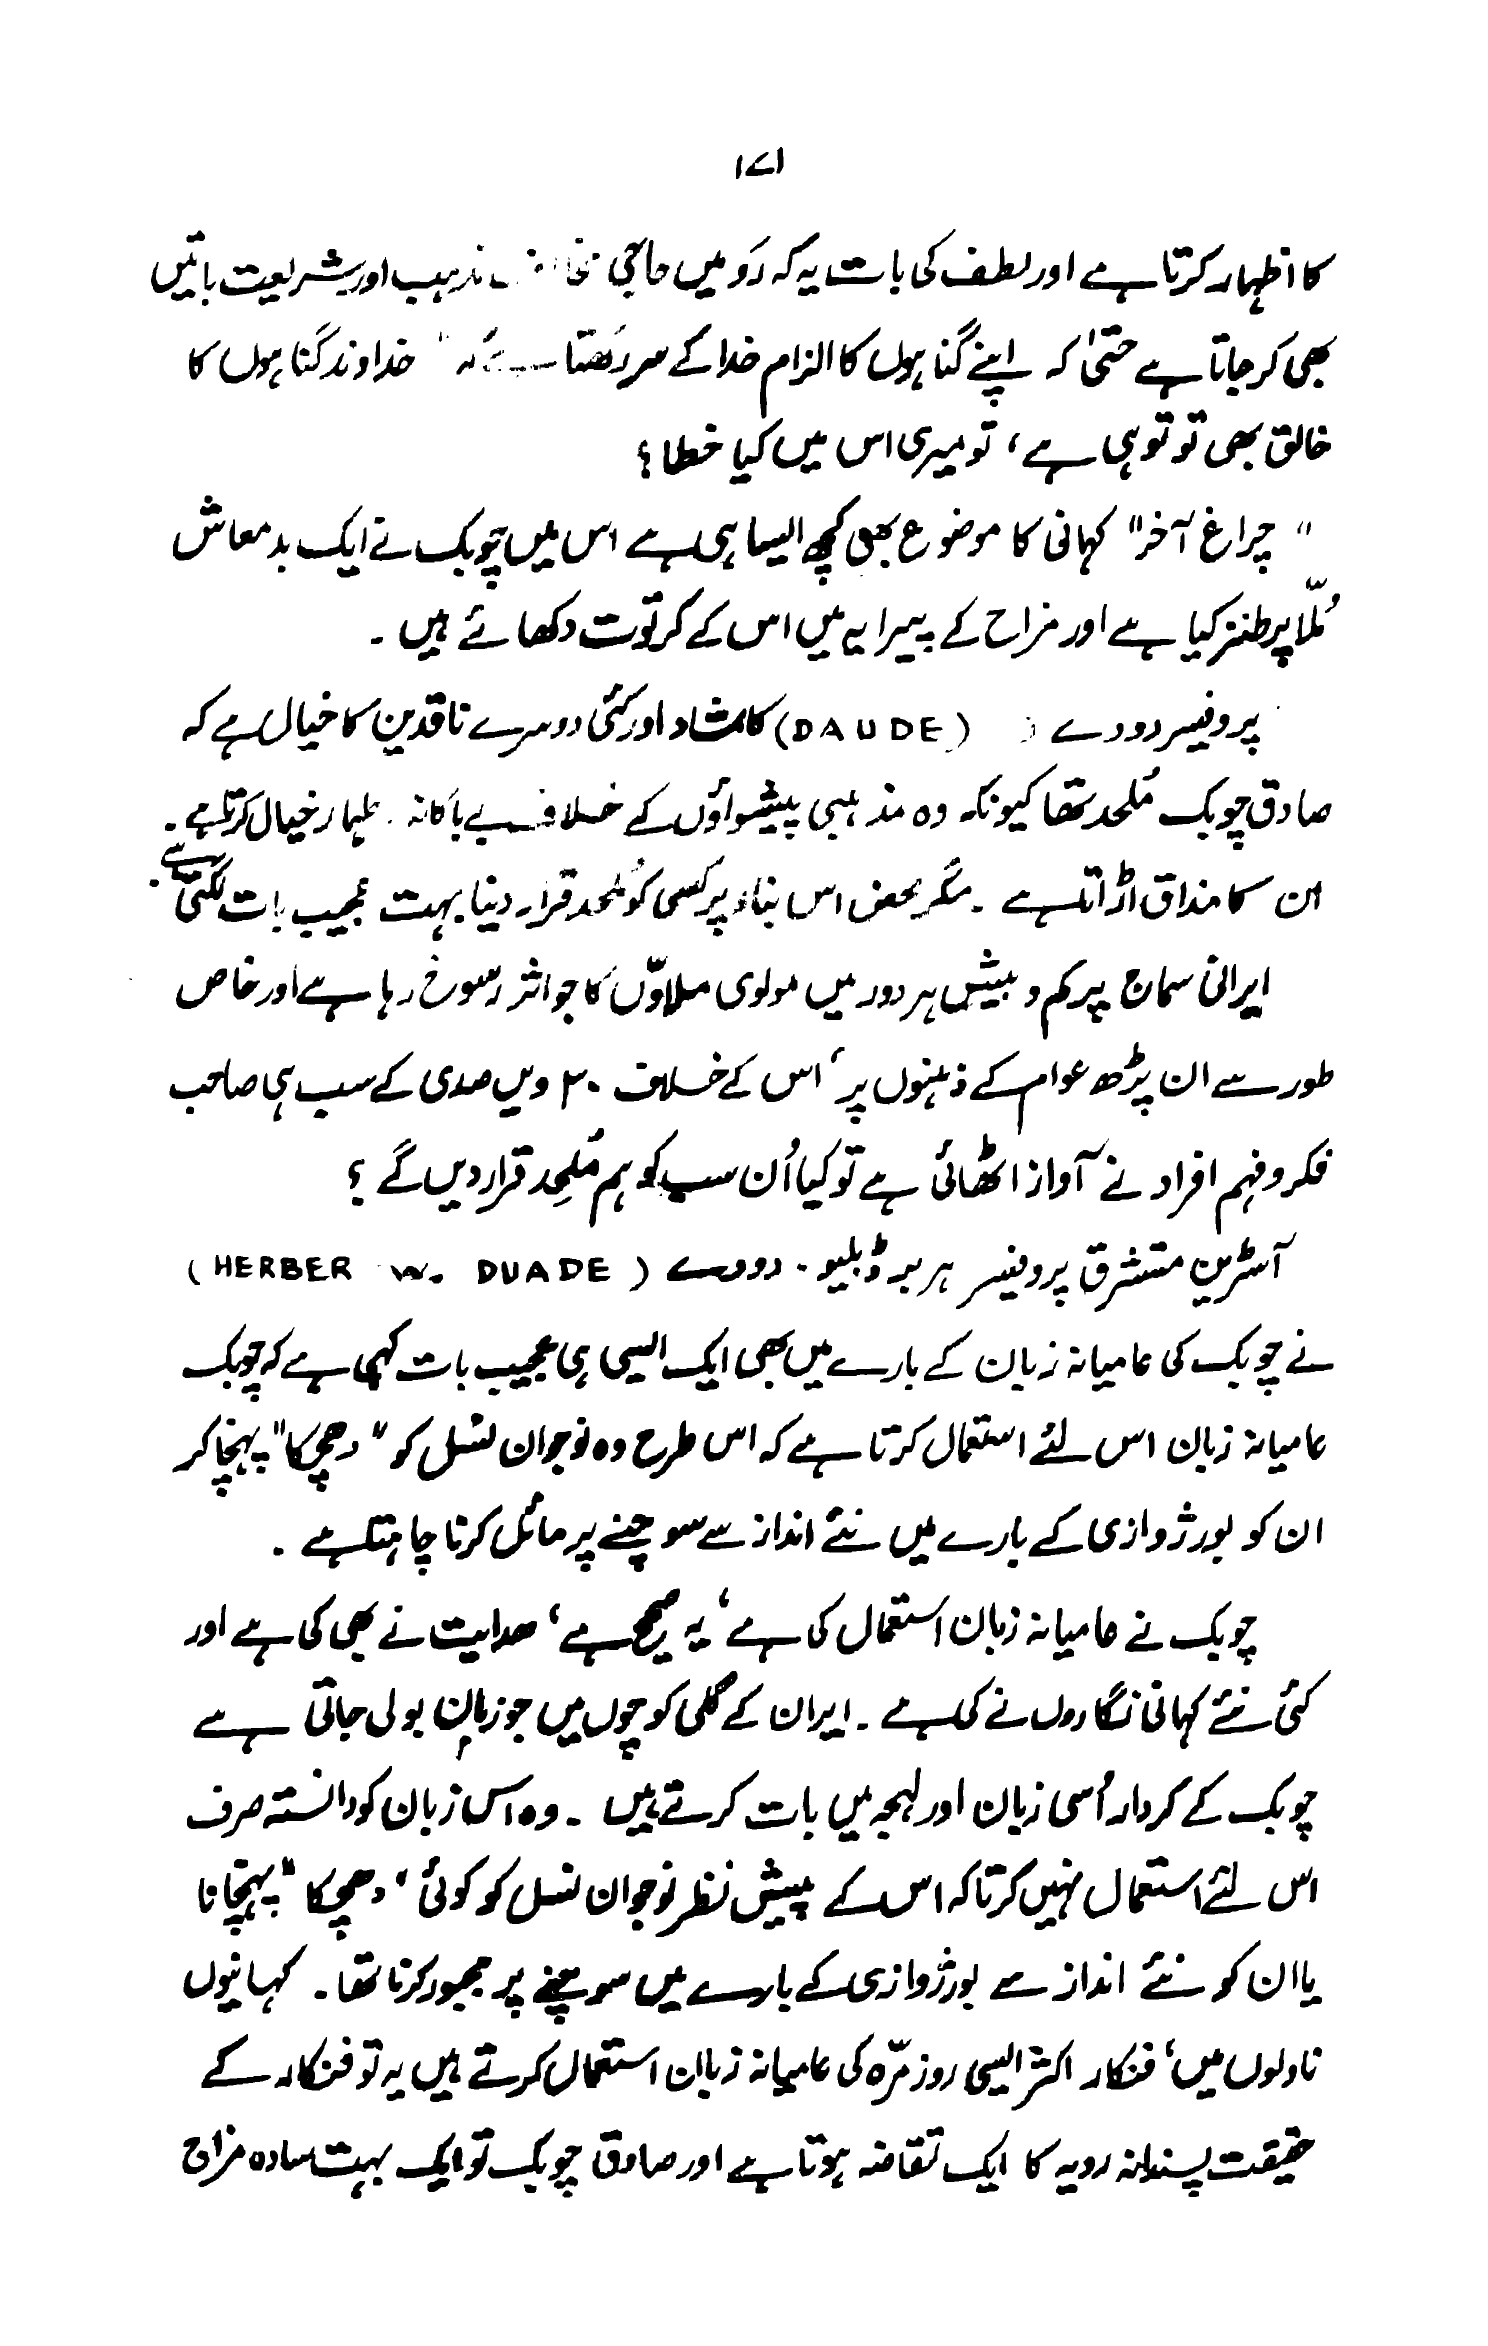 ۱۷۱
کا اظہار کرتا ہے اور لطف کی بات یہ کہ رَو میں حاجی مذہب اور شریعت باتیں
بھی کر جاتا ہے حتیٰ کہ اپنے گناہوں کا الزام خدا کے سر رکھتا ہے کہ " خداوند گناہوں کا
خالق بھی تو تو ہی ہے ، تو میری اس میں کیا خطا ؟
" چراغ آخر " کہانی کا موضوع بھی کچھ ایسا ہی ہے اس میں چوبک نے ایک بدمعاش
مُلّا پر طنز کیا ہے اور مزاح کے پیرایہ میں اس کے کرتوت دکھائے ہیں ۔
پروفیسر دودے (DAUDE) کامشاد اور کئی دوسرے ناقدین کا خیال ہے کہ
صادق چوبک مُلحد تھا کیونکہ وہ مذہبی پیشواؤں کے خلاف بے باکانہ اظہار خیال کرتا ہے ۔
ان کا مذاق اڑاتا ہے ۔ مگر محض اس بناء پر کسی کو مُلحد قرار دینا بہت عجیب بات لگتی ہے ۔
ایرانی سماج پر کم و بیش ہر دور میں مولوی ملاؤں کا جو اثر رسوخ رہا ہے اور خاص
طور سے ان پڑھ عوام کے ذہنوں پر ، اس کے خلاف ۲۰ ویں صدی کے سب ہی صاحب
فکر و فہم افراد نے آواز اٹھائی ہے تو کیا اُن سب کو ہم مُلحِد قرار دیں گے ؟
آسٹرین مستشرق پروفیسر ہربر ڈبلیو . دودے (HERBER W. DUADE)
نے چوبک کی عامیانہ زبان کے بارے میں بھی ایک ایسی ہی عجیب بات کہی ہے کہ چوبک
عامیانہ زبان اس لئے استعمال کرتا ہے کہ اس طرح وہ نوجوان نسل کو " دھچکا " پہنچا کر
ان کو بورژوازی کے بارے میں نئے انداز سے سوچنے پر مائل کرنا چاہتا ہے ۔
چوبک نے عامیانہ زبان استعمال کی ہے ، یہ صحیح ہے ، ھدایت نے بھی کی ہے اور
کئی نئے کہانی نگاروں نے کی ہے ۔ ایران کے گلی کوچوں میں جو زبان بولی جاتی ہے
چوبک کے کردار اُسی زبان اور لہجہ میں بات کرتے ہیں ۔ وہ اس زبان کو دانستہ صرف
اس لئے استعمال نہیں کرتا کہ اس کے پیش نظر نوجوان نسل کو کوئی " دھچکا " پہنچانا
یا ان کو نئے انداز سے بورژوازی کے بارے میں سوچنے پر مجبور کرنا تھا ۔ کہانیوں
ناولوں میں ، فنکار اکثر ایسی روزمرّہ کی عامیانہ زبان استعمال کرتے ہیں یہ تو فنکار کے
حقیقت پسندانہ رویہ کا ایک تقاضہ ہوتا ہے اور صادق چوبک تو ایک بہت سادہ مزاج